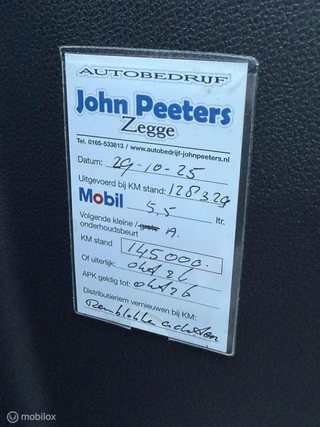 AUTOBEDRIJF
John Peeters
Zegge
Tel. 0165-533813 / www.autobedrijf-johnpeeters.nl
Datum: 29-10-25
Uitgevoerd bij KM stand: 128329
Mobil 5,5 ltr.
Volgende kleine / grote A.
onderhoudsbeurt
KM stand 145000.-
Of uiterlijk: okt 26
APK geldig tot: okt 26
Distributieriem vernieuwen bij KM:
Remblokken achter
mobilox